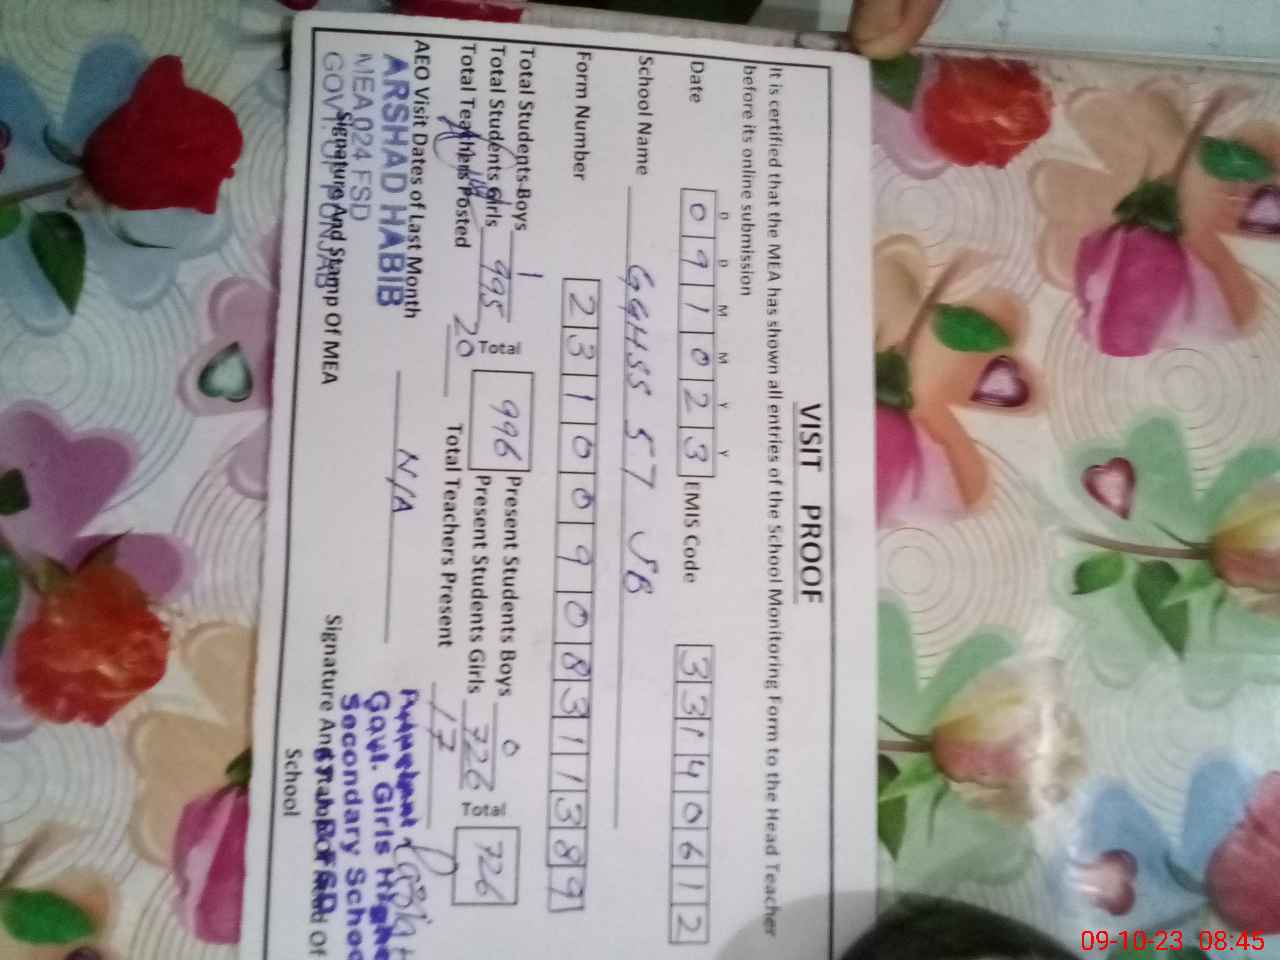 VISIT PROOF
It is certified that the MEA has shown all entries of the School Monitoring Form to the Head Teacher
before its online submission
D D M M Y Y
Date 0 9 1 0 2 3 EMIS Code 3 3 1 4 0 6 1 2
School Name GGHSS 57 JB
Form Number 2 3 1 0 0 9 0 8 3 1 1 3 8 9
Total Students Boys 1 Present Students Boys 0
Total Students Girls 995 Total 996 Present Students Girls 726 Total 726
Total Teachers Posted 20 Total Teachers Present 17
AEO Visit Dates of Last Month N/A
ARSHAD HABIB
MEA 024 FSD
GOVT. OF PUNJAB
Signature And Stamp Of MEA
Govt. Girls Highe
Secondary Schoo
Signature And Of
School
09-10-23 08:45